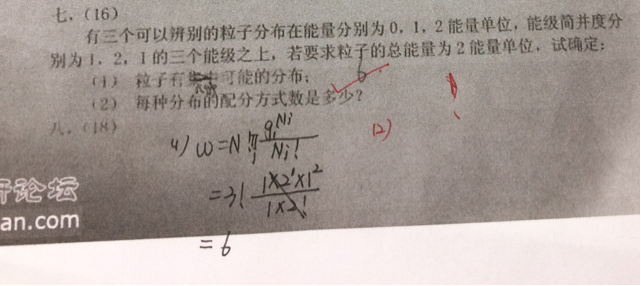 七、(16)
有三个可以辨别的粒子分布在能量分别为0,1,2能量单位,能级简并度分
别为1,2,1的三个能级之上,若要求粒子的总能量为2能量单位,试确定:
(1) 粒子有 可能的分布;
6
(2) 每种分布的配分方式数是多少?
八、(18)
(1) ω=N!∏i gi^Ni/Ni!
(2)
=3! 1×2^1×1^2/1×2!
=6
论坛
an.com